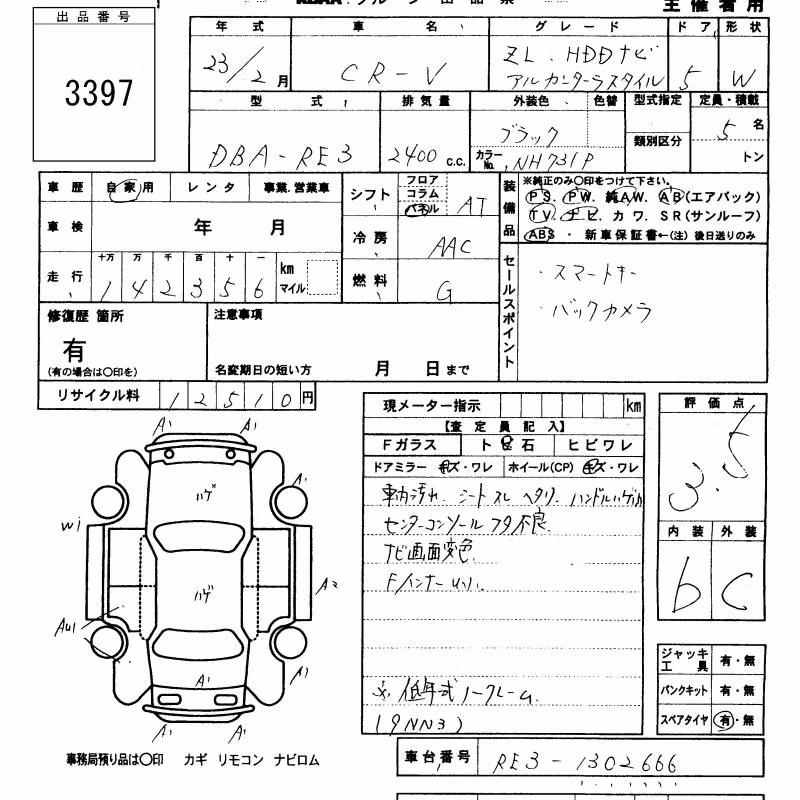 出品番号
3397
主催者用
年式 車名 グレード ドア 形状
23/2月 CR-V ZL HDDナビ アルカンターラスタイル 5 W
型式 排気量 外装色 色替 型式指定 定員・積載
類別区分
DBA-RE3 2400 c.c. ブラック カラーNo. NH731P 5名
トン
車歴 自家用 レンタ 事業.営業車
車検 年 月
走行 十万 万 千 百 十 一 km マイル
1 4 2 3 5 6
シフト フロア コラム パネル AT
冷房 AAC
燃料 G
装備品 ※純正のみ〇印をつけて下さい。
PS. PW. 純AW. AB(エアバック)
TV. ナビ. カワ. SR(サンルーフ)
ABS ・ 新車保証書←(注) 後日送りのみ
セールスポイント
・スマートキー
・バックカメラ
修復歴 箇所
有
(有の場合は〇印を)
注意事項
名変期日の短い方 月 日まで
リサイクル料 12510円
A1 A1
ハゲ
A1
Wi
ハゲ
A2
AU1
A1
A1 A1
A1 A1
事務局預り品は〇印 カギ リモコン ナビロム
現メーター指示 km
【査定員記入】
Fガラス トビ石 ヒビワレ
ドアミラー キズ・ワレ ホイール(CP) キズ・ワレ
車内汚れ シートスレ ヘタリ ハンドルハゲ
センターコンソールフタ不良
ナビ画面変色
※低年式ノークレーム
(9NN3)
評価点
3.5
内装 外装
b C
ジャッキ工具 有・無
パンクキット 有・無
スペアタイヤ 有・無
車台番号 RE3-1302666